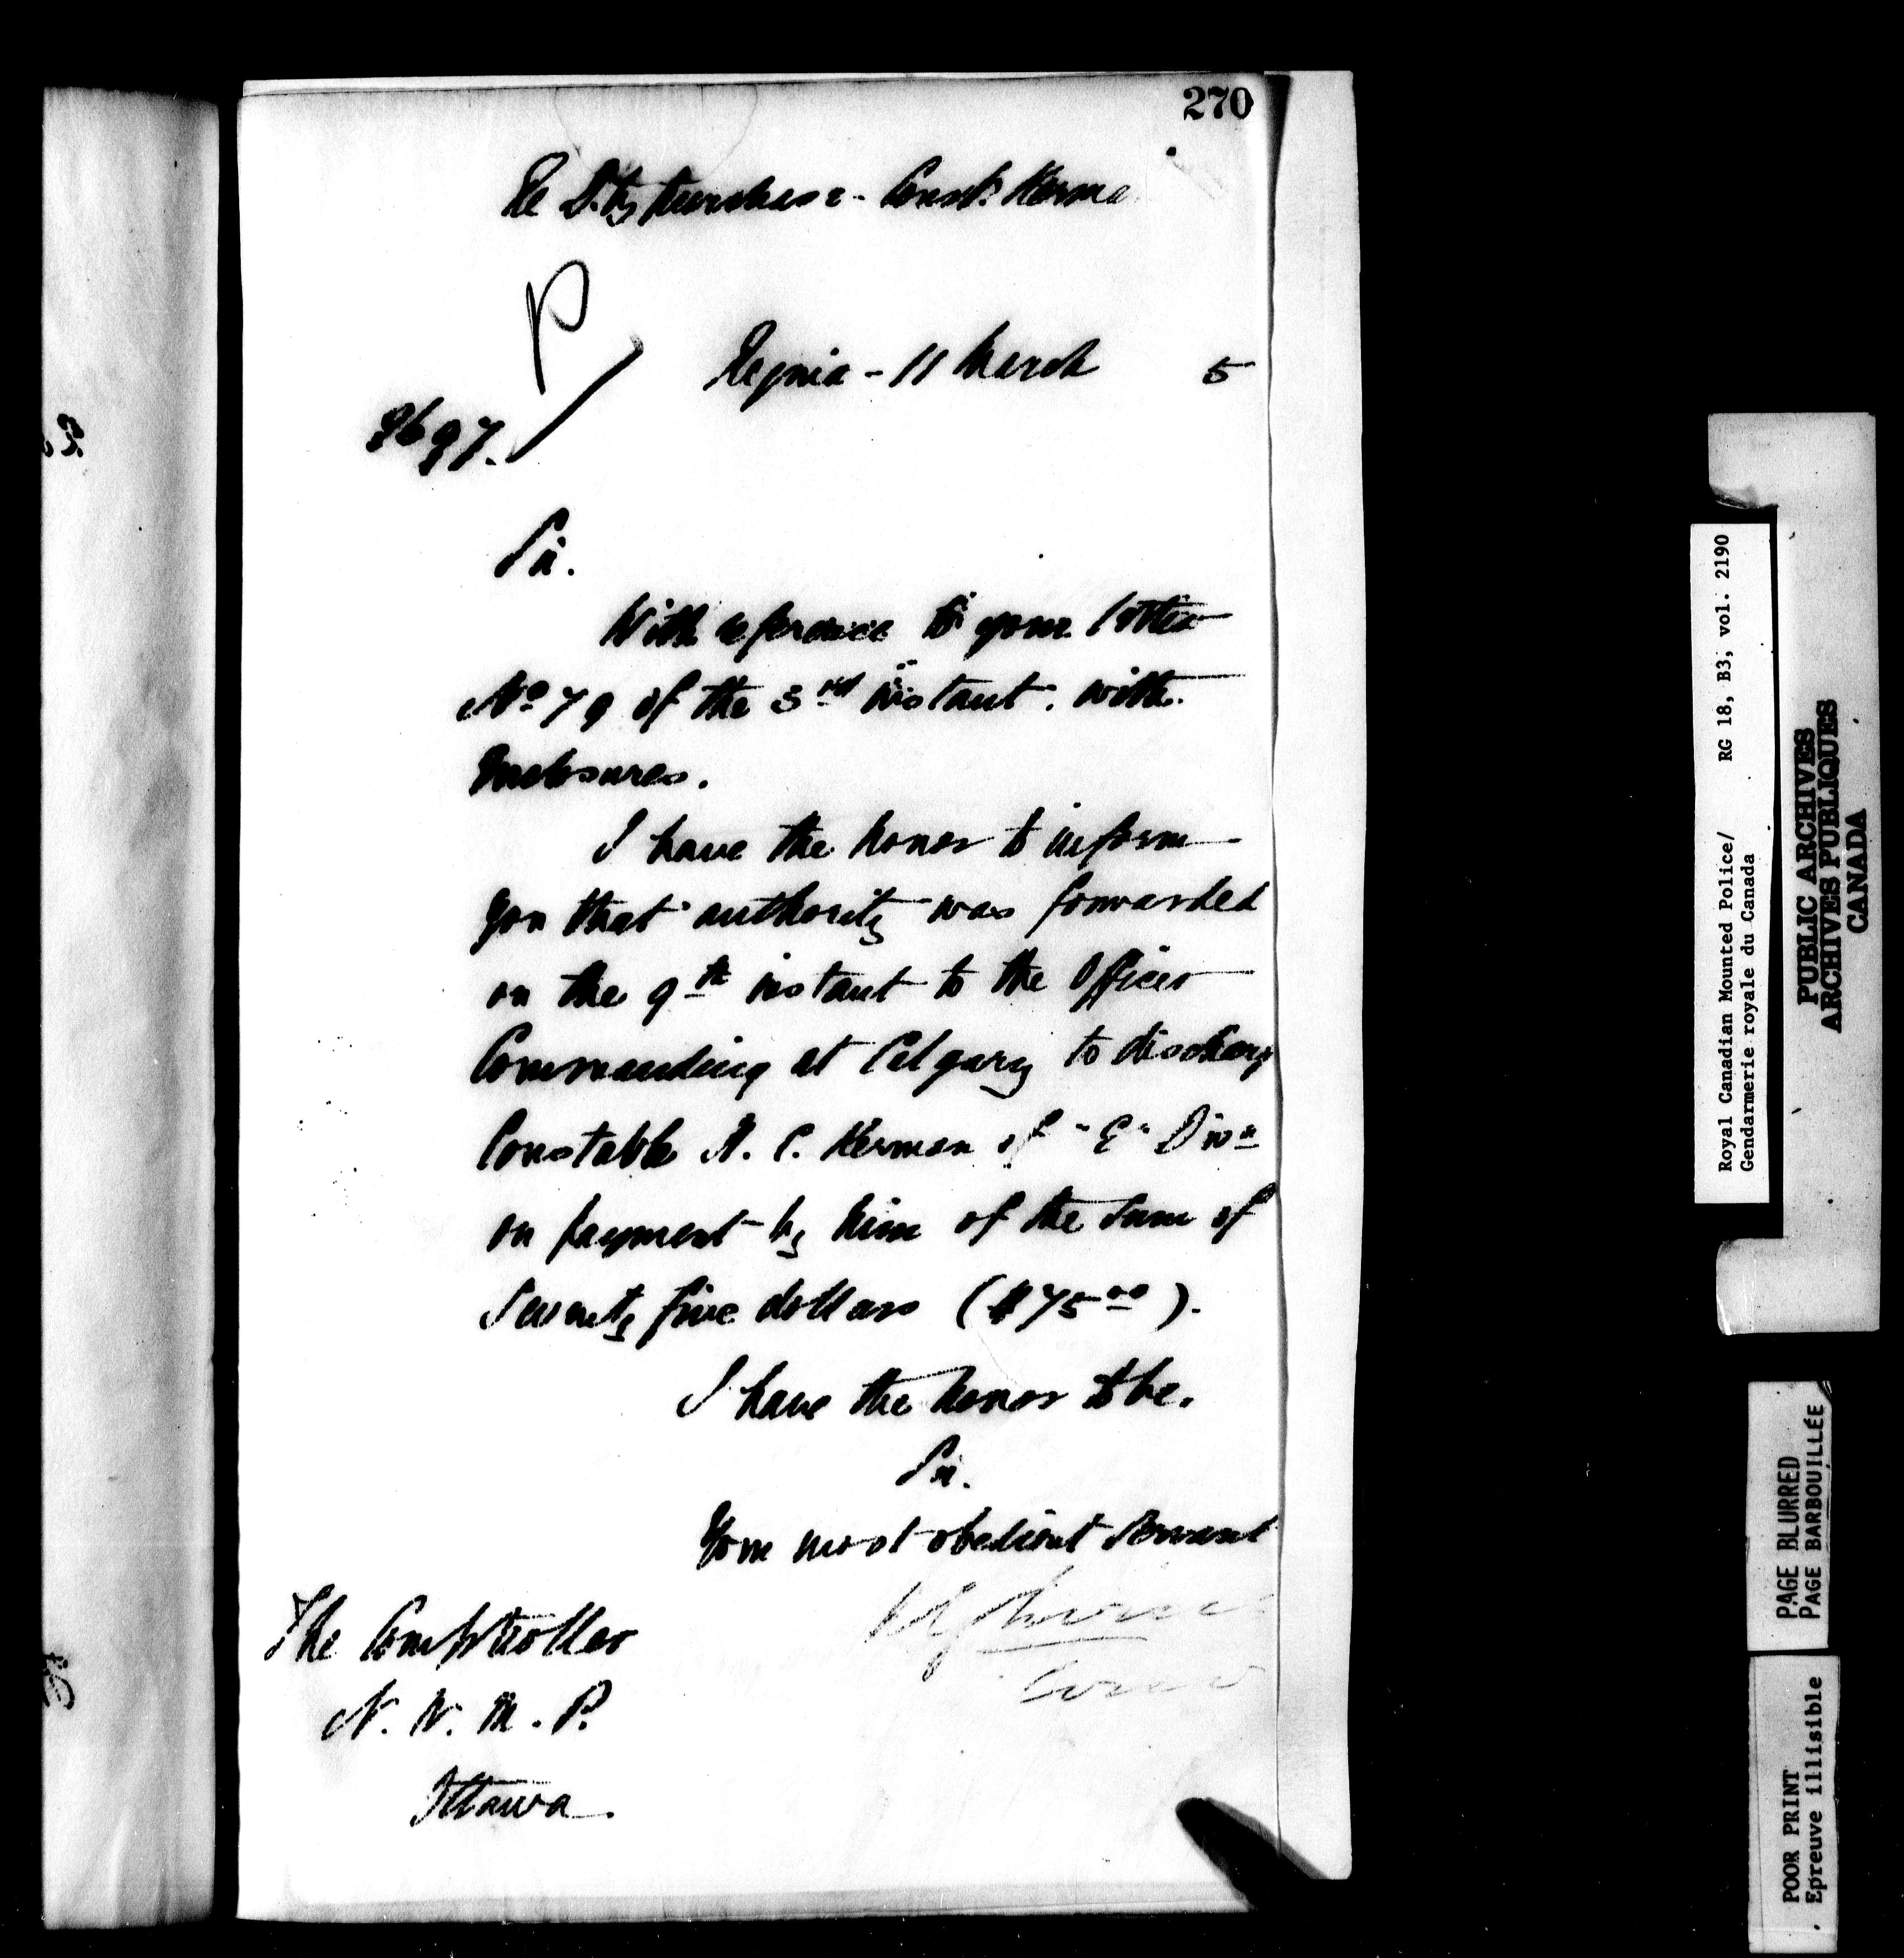 270
Re D. by purchase - Const. Kerma
P
Regina - 11 March 5
No 97.
Sir.
With reference to your letter
No 79 of the 3rd instant. with
Enclosures.
I have the honor to inform
you that authority was forwarded
on the 9th instant to the Officer
Commanding at Calgary to discharg
Constable A. C. Kerman of "E" Divn
on payment by him of the sum of
Seventy five dollars ($75 00).
I have the honor to be.
Sir.
Your most obedient Servant
The Comptroller
N. W. M. P.
Ottawa.
Royal Canadian Mounted Police/ RG 18, B3, vol. 2190
Gendarmerie royale du Canada
PUBLIC ARCHIVES
ARCHIVES PUBLIQUES
CANADA
PAGE BLURRED
PAGE BARBOUILLÉE
POOR PRINT
Epreuve illisible